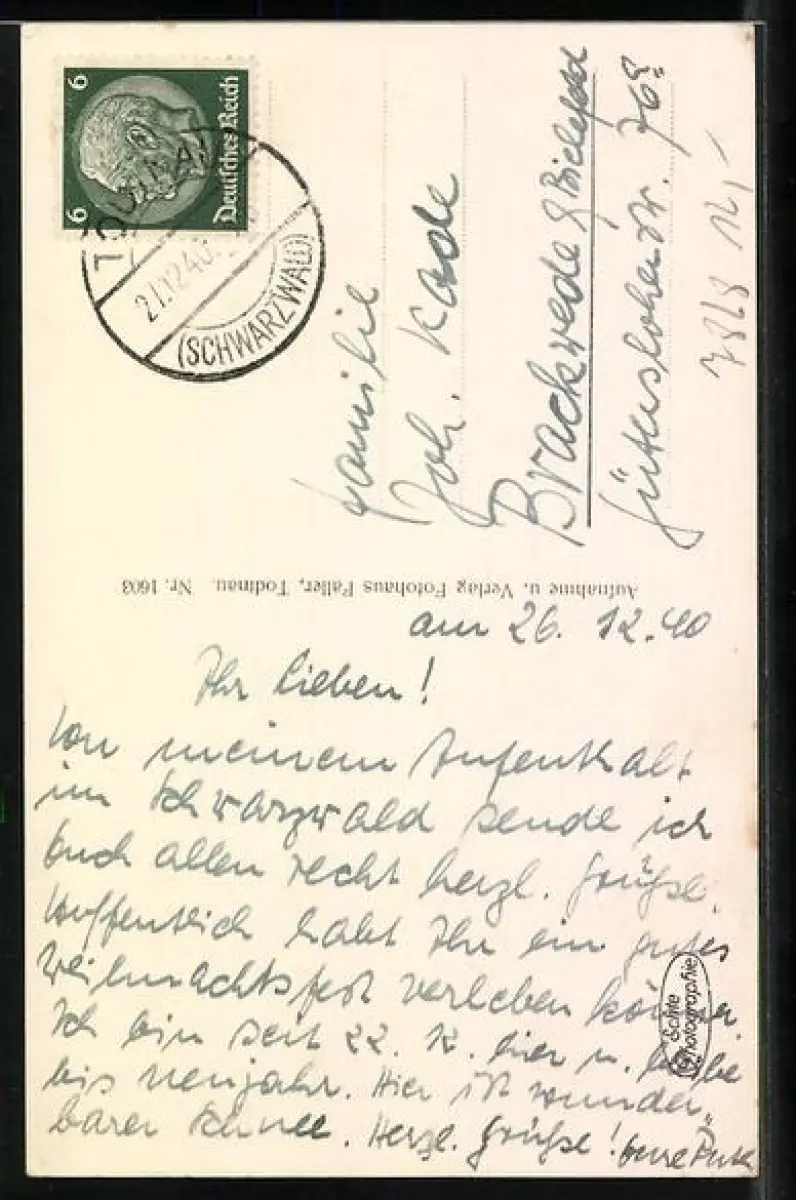 6
6
Deutsches Reich
27.12.40
(SCHWARZWALD)
Familie
Joh. Kade
Brackwede b/Bielefeld
Gütersloherstr.
Aufnahme u. Verlag Fotohaus Faller, Todtnau. Nr. 1603
am 26. 12. 40
Ihr Lieben!
Von meinem Aufenthalt
im Schwarzwald sende ich
Euch allen recht herzl. Grüße.
Hoffentlich habt Ihr ein gutes
Weihnachtsfest verleben können.
Ich bin seit 22. 12. hier u. bleibe
bis Neujahr. Hier ist wunder-
barer Schnee. Herzl. Grüße! Eure Ruth
Echte
Photographie